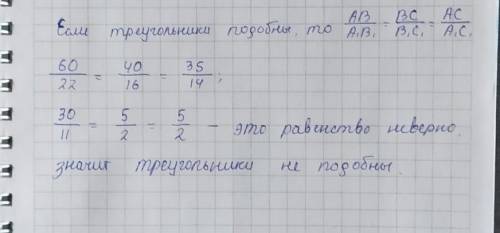 Если треугольники подобны, то AB/A₁B₁ = BC/B₁C₁ = AC/A₁C₁
60/22 = 40/16 = 35/14;
30/11 = 5/2 = 5/2 — это равенство неверно,
значит треугольники не подобны.